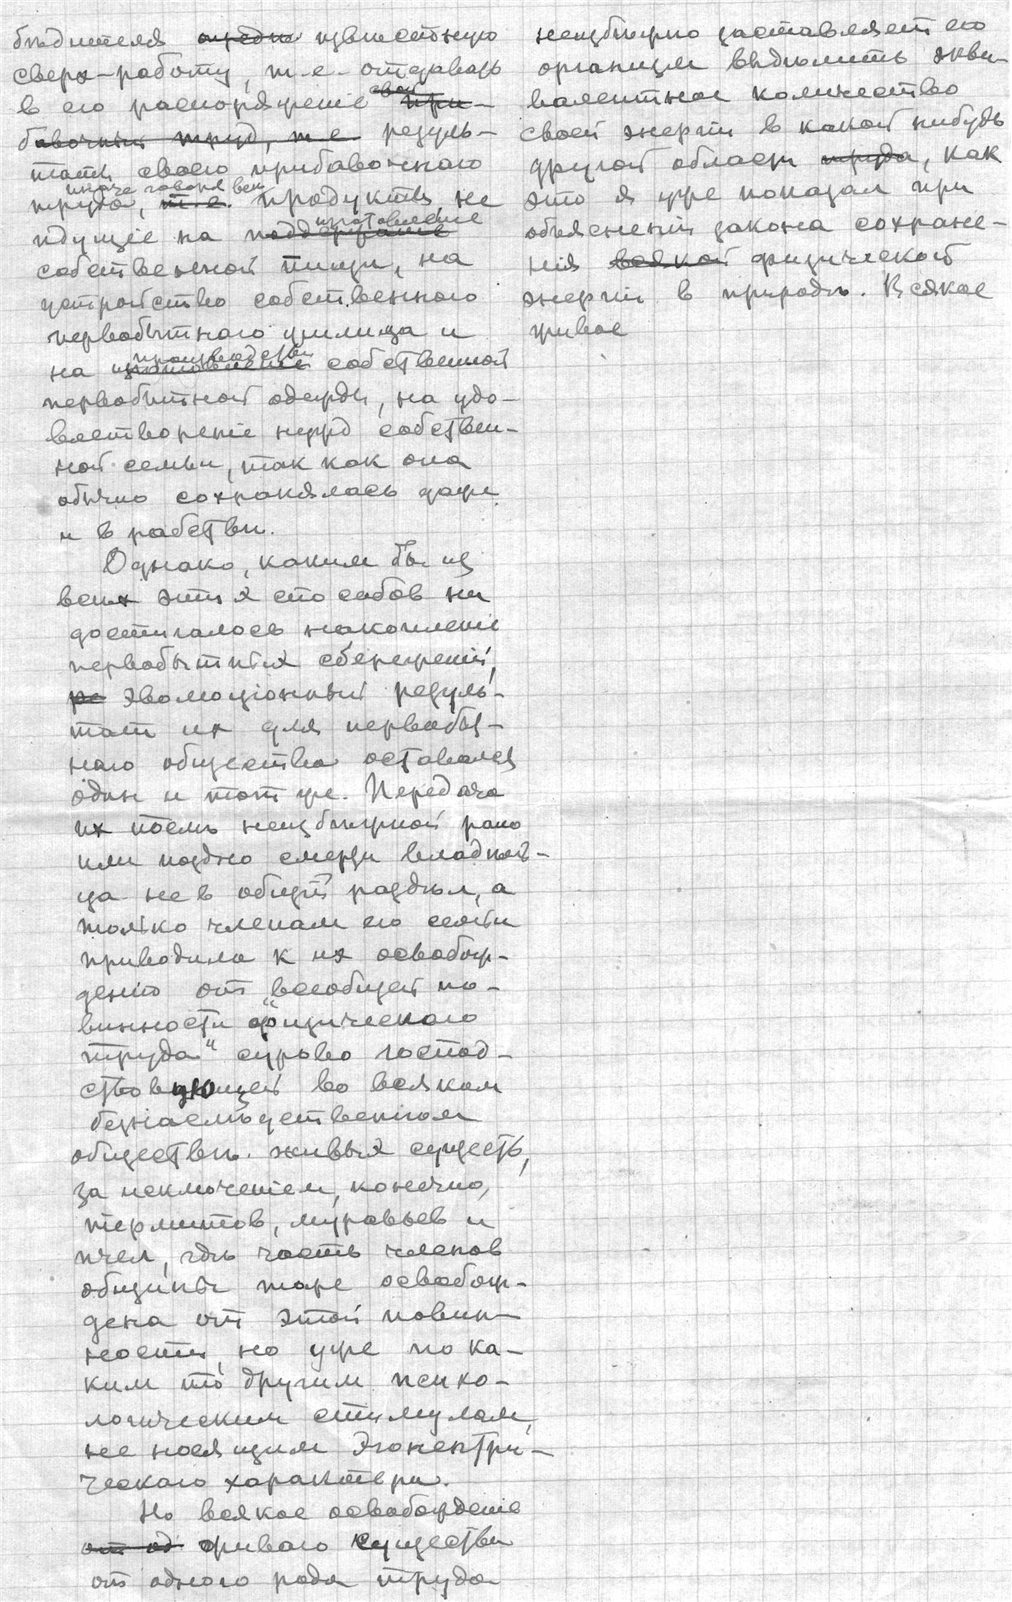 бѣдителя извѣстную
сверх-работу, т. е. отдавать
в его распоряженіе свой
резуль-
таты своего прибавочнаго
труда, иначе говоря всѣ продукты, не
идущіе на изготовленіе
собственной пищи, на
устройство собственного
первобытнаго жилища и
на производство собственной
первобытной одежды, на удо-
влетвореніе нужд собствен-
ной семьи, так как она
обычно сохранялась даже
и в рабствѣ.
Однако, каким бы из
всѣх этих способов ни
достигалось накопленіе
первобытных сбереженій,
эволюціонный резуль-
тат их для первобыт-
наго общества оставался
один и тот же. Передача
их послѣ неизбѣжной рано
или поздно смерти владѣль-
ца не в общій раздѣл, а
только членам его семьи
приводила к их освобож-
денію от всеобщей по-
винности „физическаго
труда“ сурово господ-
ствующей во всяком
безнаслѣдственном
обществѣ живых существ,
за исключеніем, конечно,
термитов, муравьев и
пчел, гдѣ часть членов
общины тоже освобож-
дена от этой повин-
ности, но уже по ка-
ким то другим психо-
логическим стимулам,
не носящим эгоцентри-
ческаго характера.
Но всякое освобожденіе
живого существа
от одного рода труда
неизбѣжно заставляет его
организм выдѣлить экви-
валентное количество
своей энергіи в какой нибудь
другой области, как
это я уже показал при
объясненіи закона сохране-
нія физической
энергіи в природѣ. Всякое
живое